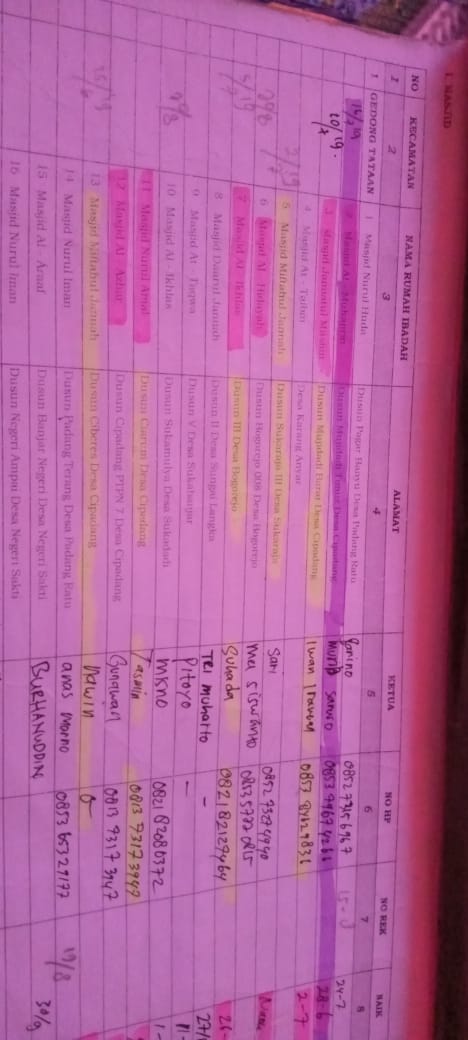 I. MASJID
NO KECAMATAN NAMA RUMAH IBADAH ALAMAT KETUA NO HP NO REK NAIK
1 2 3 4 5 6 7 8
1 GEDONG TATAAN 1 Masjid Nurul Huda Dusun Pagar Banyu Desa Padang Ratu 24-7
2 Masjid Al - Muhajirin Dusun Mujidadi Timur Desa Cipadang Murip 28-6
3 Masjid Jamiatul Muslim Dusun Mujidadi Barat Desa Cipadang Iwan Irawan 2-7
4 Masjid At - Taibin Desa Karang Anyar
5 Masjid Miftahul Jannah Dusun Sukaraja III Desa Sukaraja Sari 0852 73274940
6 Masjid Al - Hidayah Dusun Bogorejo 008 Desa Bogorejo Mei Siswanto
7 Masjid Al - Ikhlas Dusun III Desa Bogorejo Suhada 082182127464
8 Masjid Daarul Jannah Dusun II Desa Sungai Langka TRI Muharto -
9 Masjid At - Taqwa Dusun V Desa Sukabanjar Pitoyo -
10 Masjid Al - Ikhlas Dusun Sukamulya Desa Sukadadi 0821 82080372
11 Masjid Nurul Amal Dusun Ciarum Desa Cipadang Tasmin 0813 73173949
12 Masjid Al - Azhar Dusun Cipadang PTPN 7 Desa Cipadang Gunawan 0813 7317 3947
13 Masjid Miftahul Jannah Dusun Ciberes Desa Cipadang
14 Masjid Nurul Iman Dusun Padang Terang Desa Padang Ratu anas Marno 0853 65329177 19/8
15 Masjid Al - Araaf Dusun Banjar Negeri Desa Negeri Sakti BURHANUDDIN 30/9
16 Masjid Nurul Iman Dusun Negeri Ampai Desa Negeri Sakti